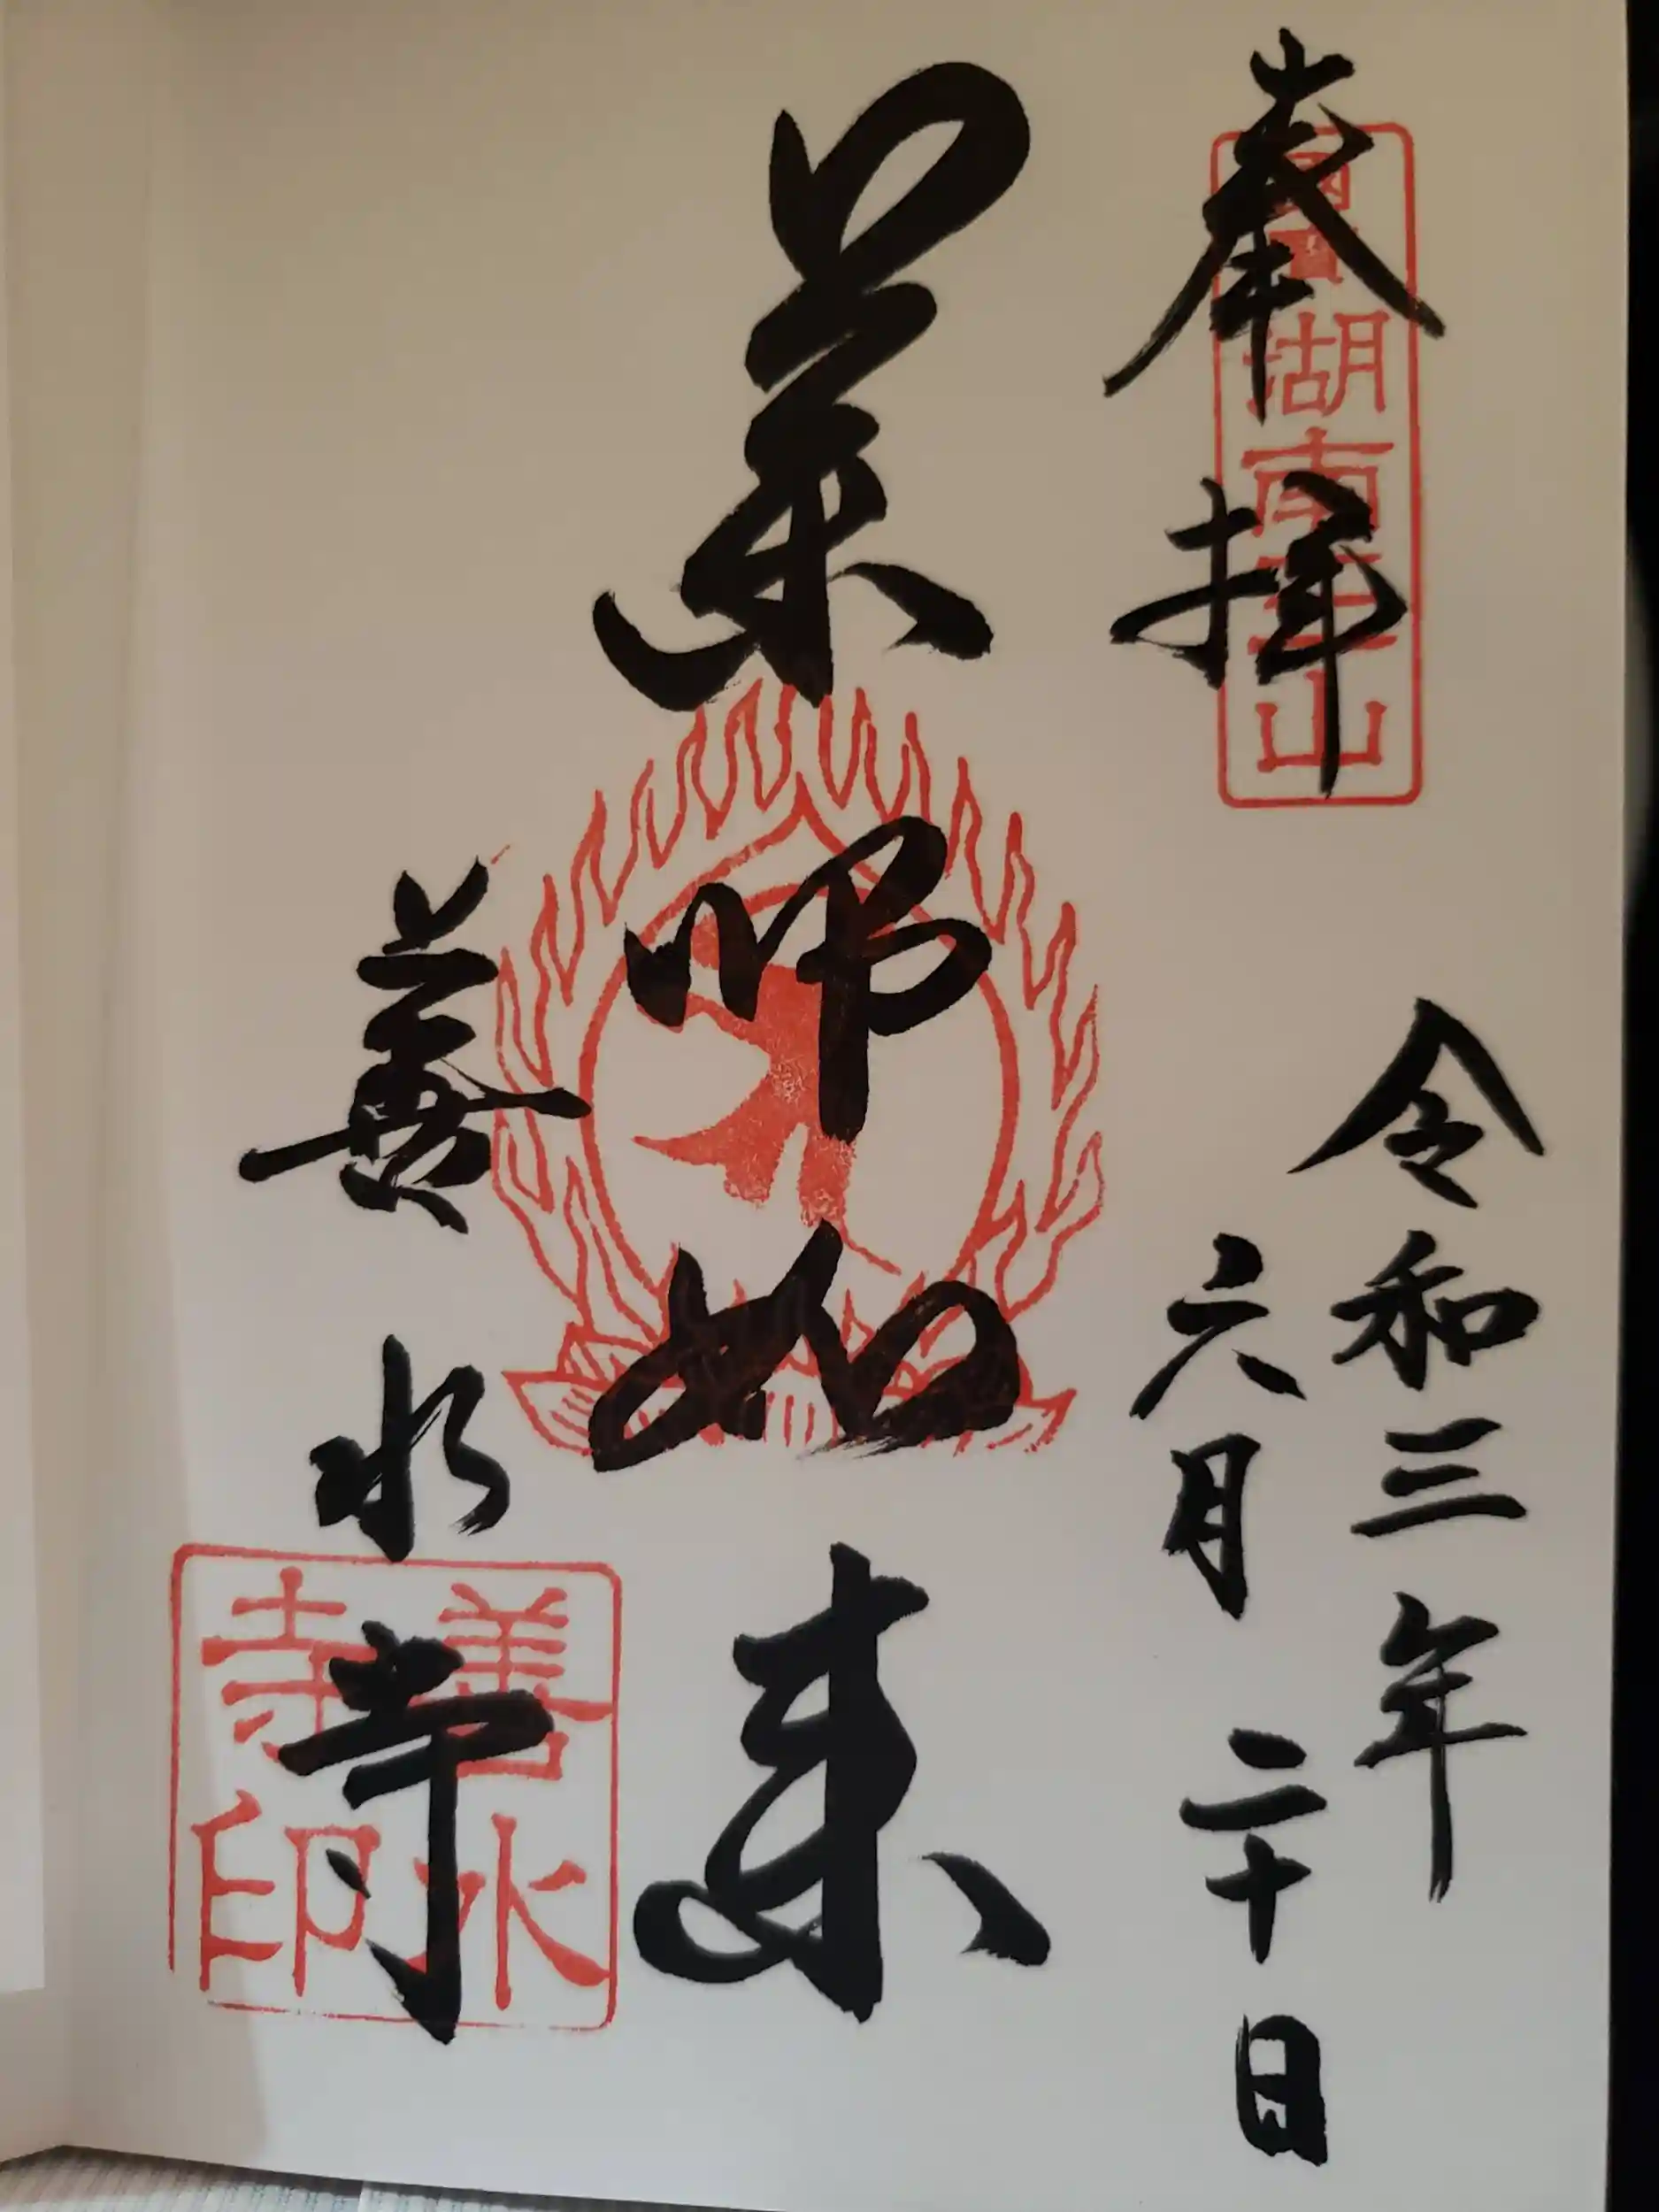 奉拝
國寶湖南三山
令和三年
六月二十日
薬師如来
善水寺
善水寺印